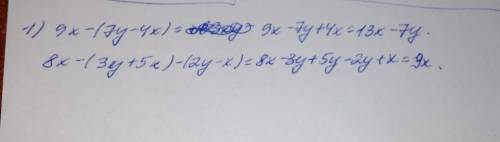 1) 9x-(7y-4x)= 9x-7y+4x=13x-7y.
8x-(3y+5x)-(2y-x)=8x-3y+5y-2y+x=9x.